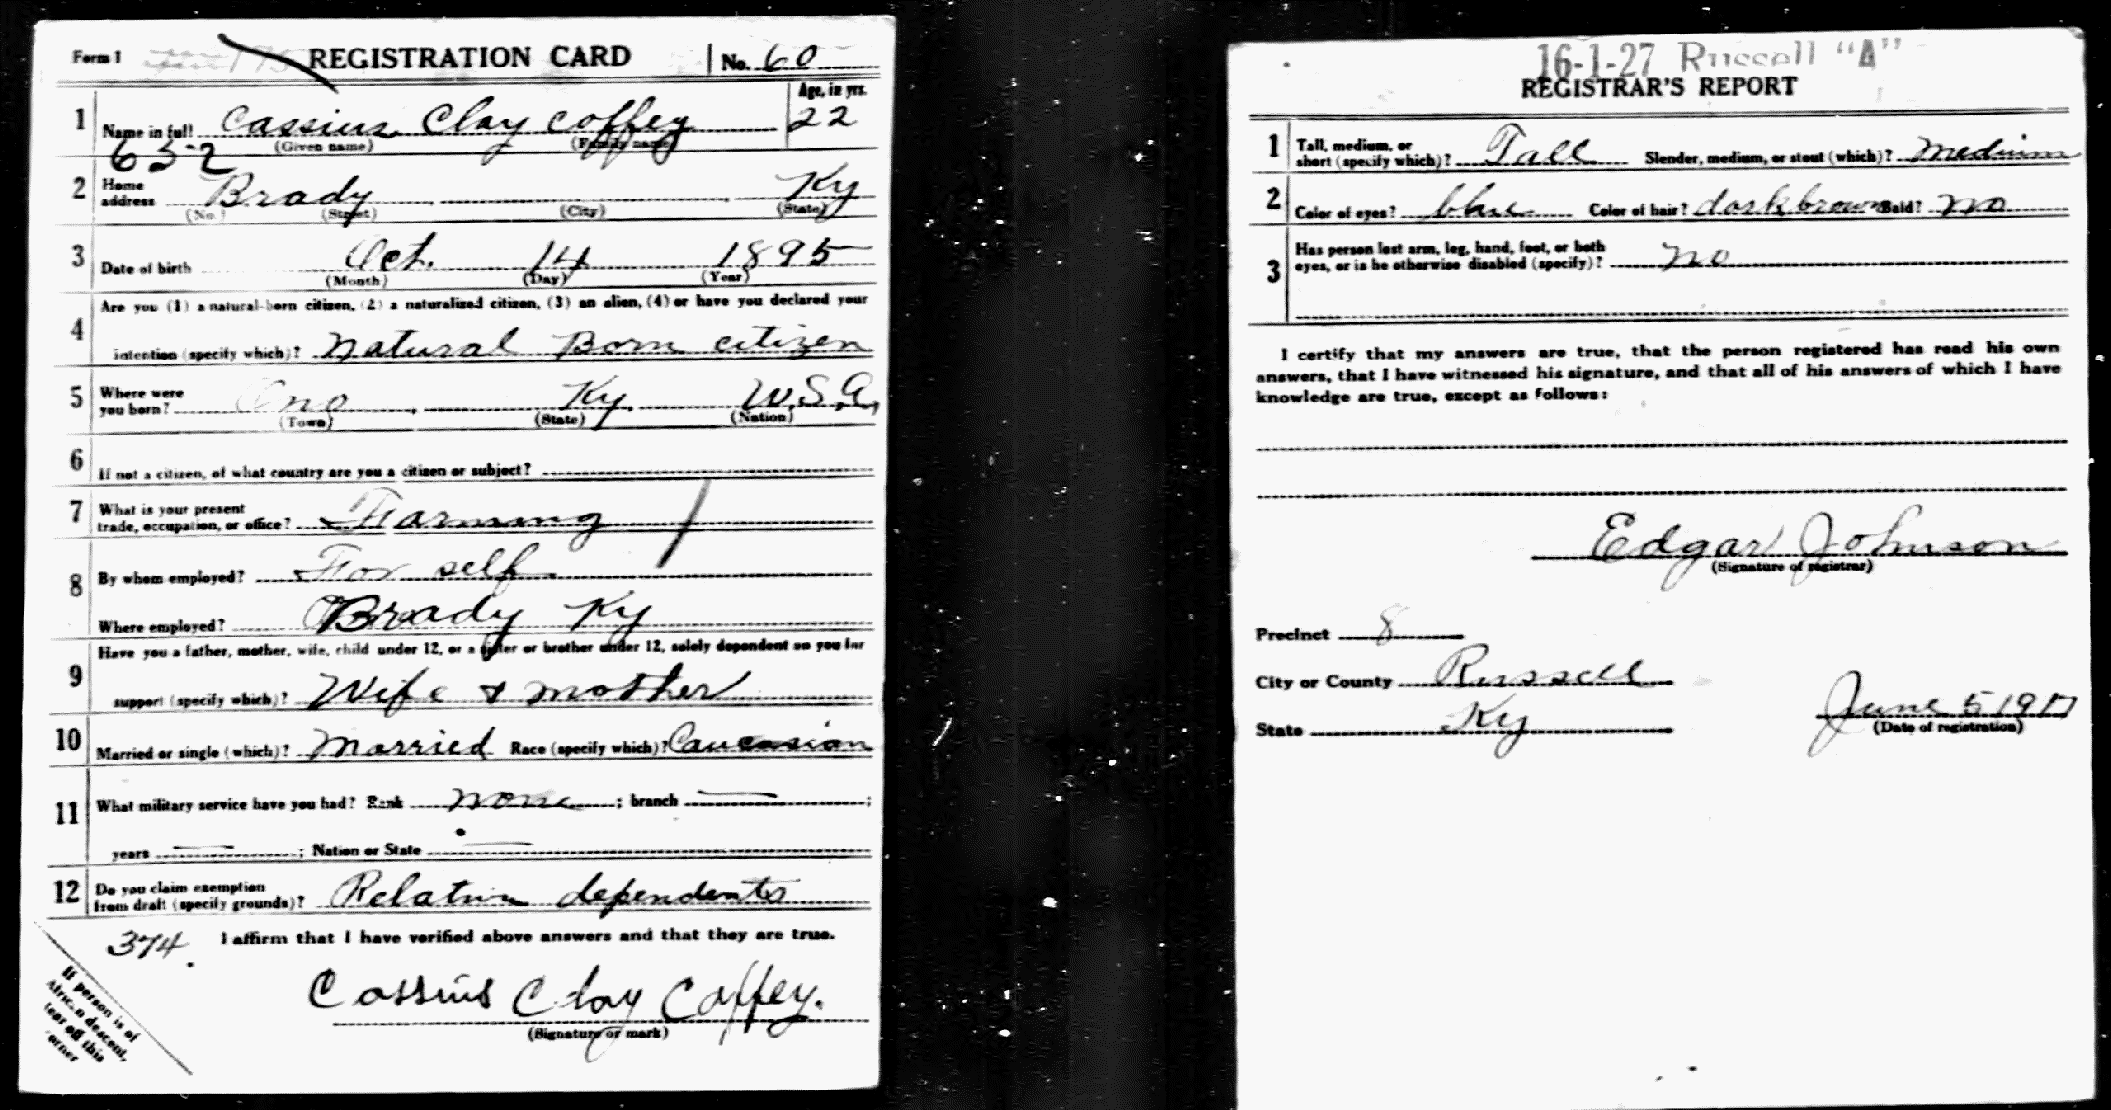 Form 1 REGISTRATION CARD No. 60
1 Name in full Cassius Clay Coffey Age, in yrs. 22
(Given name) (Family name)
632
2 Home address Brady Ky
(No.) (Street) (City) (State)
3 Date of birth Oct. 14 1895
(Month) (Day) (Year)
Are you (1) a natural-born citizen, (2) a naturalized citizen, (3) an alien, (4) or have you declared your
4 intention (specify which)? Natural Born citizen
5 Where were you born? Ono, Ky. U.S.A,
(Town) (State) (Nation)
6 If not a citizen, of what country are you a citizen or subject?
7 What is your present trade, occupation, or office? Farming
8 By whom employed? For self
Where employed? Brady Ky
Have you a father, mother, wife, child under 12, or a sister or brother under 12, solely dependent on you for
9 support (specify which)? Wife & mother
10 Married or single (which)? Married Race (specify which)? Caucasian
11 What military service have you had? Rank none ; branch — ;
years — ; Nation or State —
12 Do you claim exemption from draft (specify grounds)? Relative dependents
374. I affirm that I have verified above answers and that they are true.
Cassius Clay Coffey.
(Signature or mark)
If person is of
African descent,
tear off this
corner
16-1-27 Russell "A"
REGISTRAR'S REPORT
1 Tall, medium, or short (specify which)? Tall Slender, medium, or stout (which)? Medium
2 Color of eyes? blue Color of hair? dark brown Bald? no
3 Has person lost arm, leg, hand, foot, or both eyes, or is he otherwise disabled (specify)? no
I certify that my answers are true, that the person registered has read his own
answers, that I have witnessed his signature, and that all of his answers of which I have
knowledge are true, except as follows:
Edgar Johnson
(Signature of registrar)
Precinct 8
City or County Russell
State Ky June 5 1917
(Date of registration)